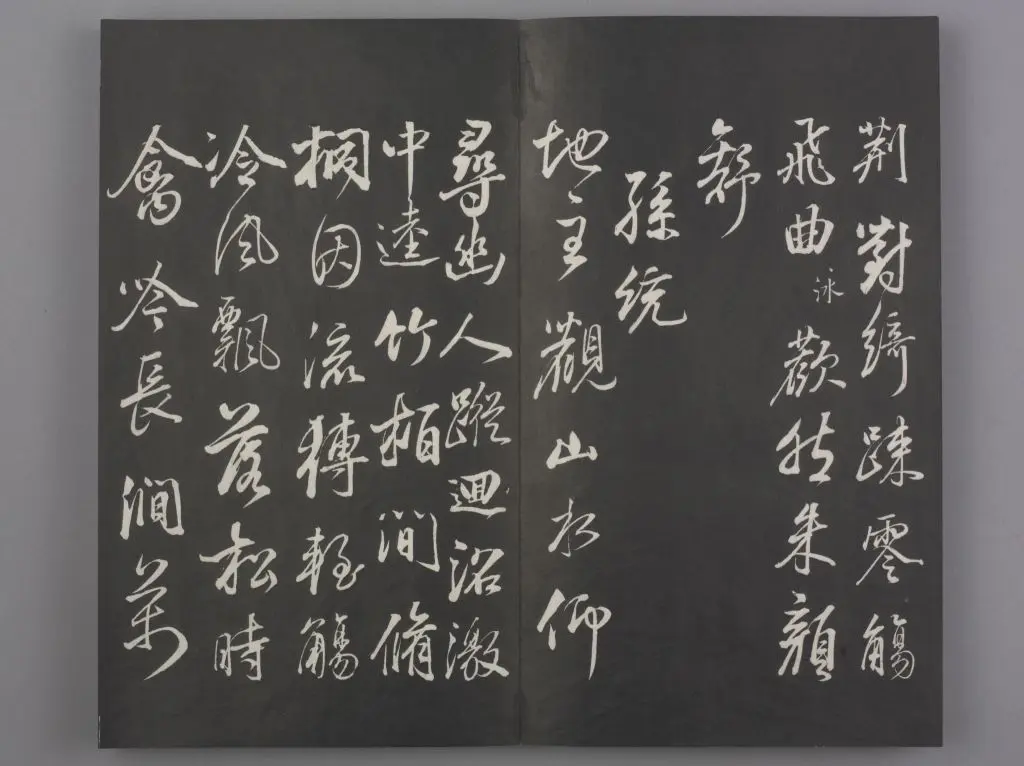 荆對綺踈零觴
飛曲歡然朱顏
舒
孫統
地主觀山水仰
尋幽人蹤迴沼激
中逵竹柏澗脩
桐因流轉輕觴
冷風飄落松時
禽吟長澗萬